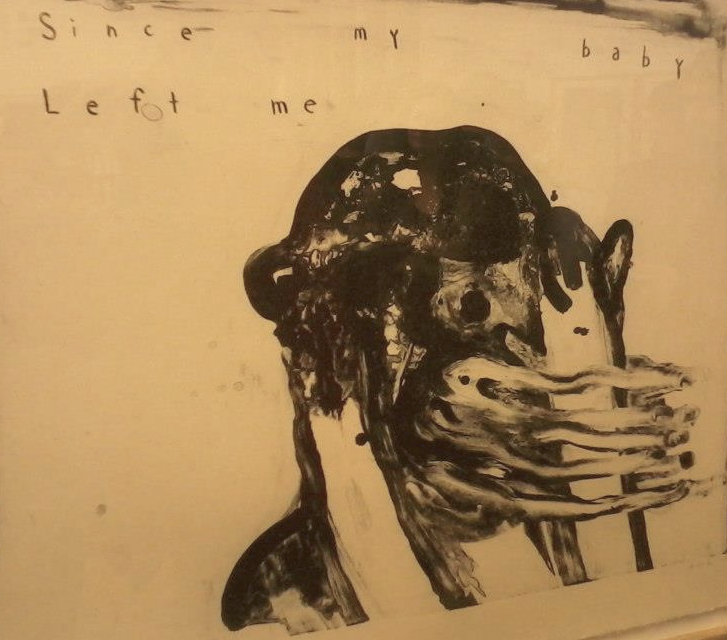 Since my baby
Left me